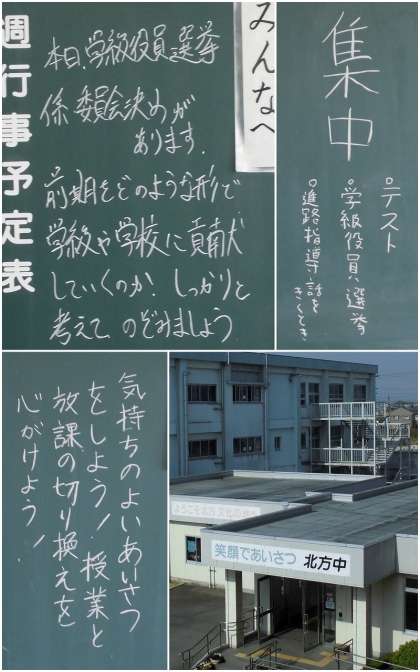 週行事予定表
みんなへ
本日、学級役員選挙
係 委員会決めが
あります。
前期をどのような形で
学級や学校に貢献
していくのか、しっかりと
考えて、のぞみましょう
集中
○テスト
○学級役員選挙
○進路指導話を
きくとき
気持ちのよいあいさつ
をしよう！授業と
放課の切り換えを
心がけよう！
ようこそ
笑顔であいさつ 北方中